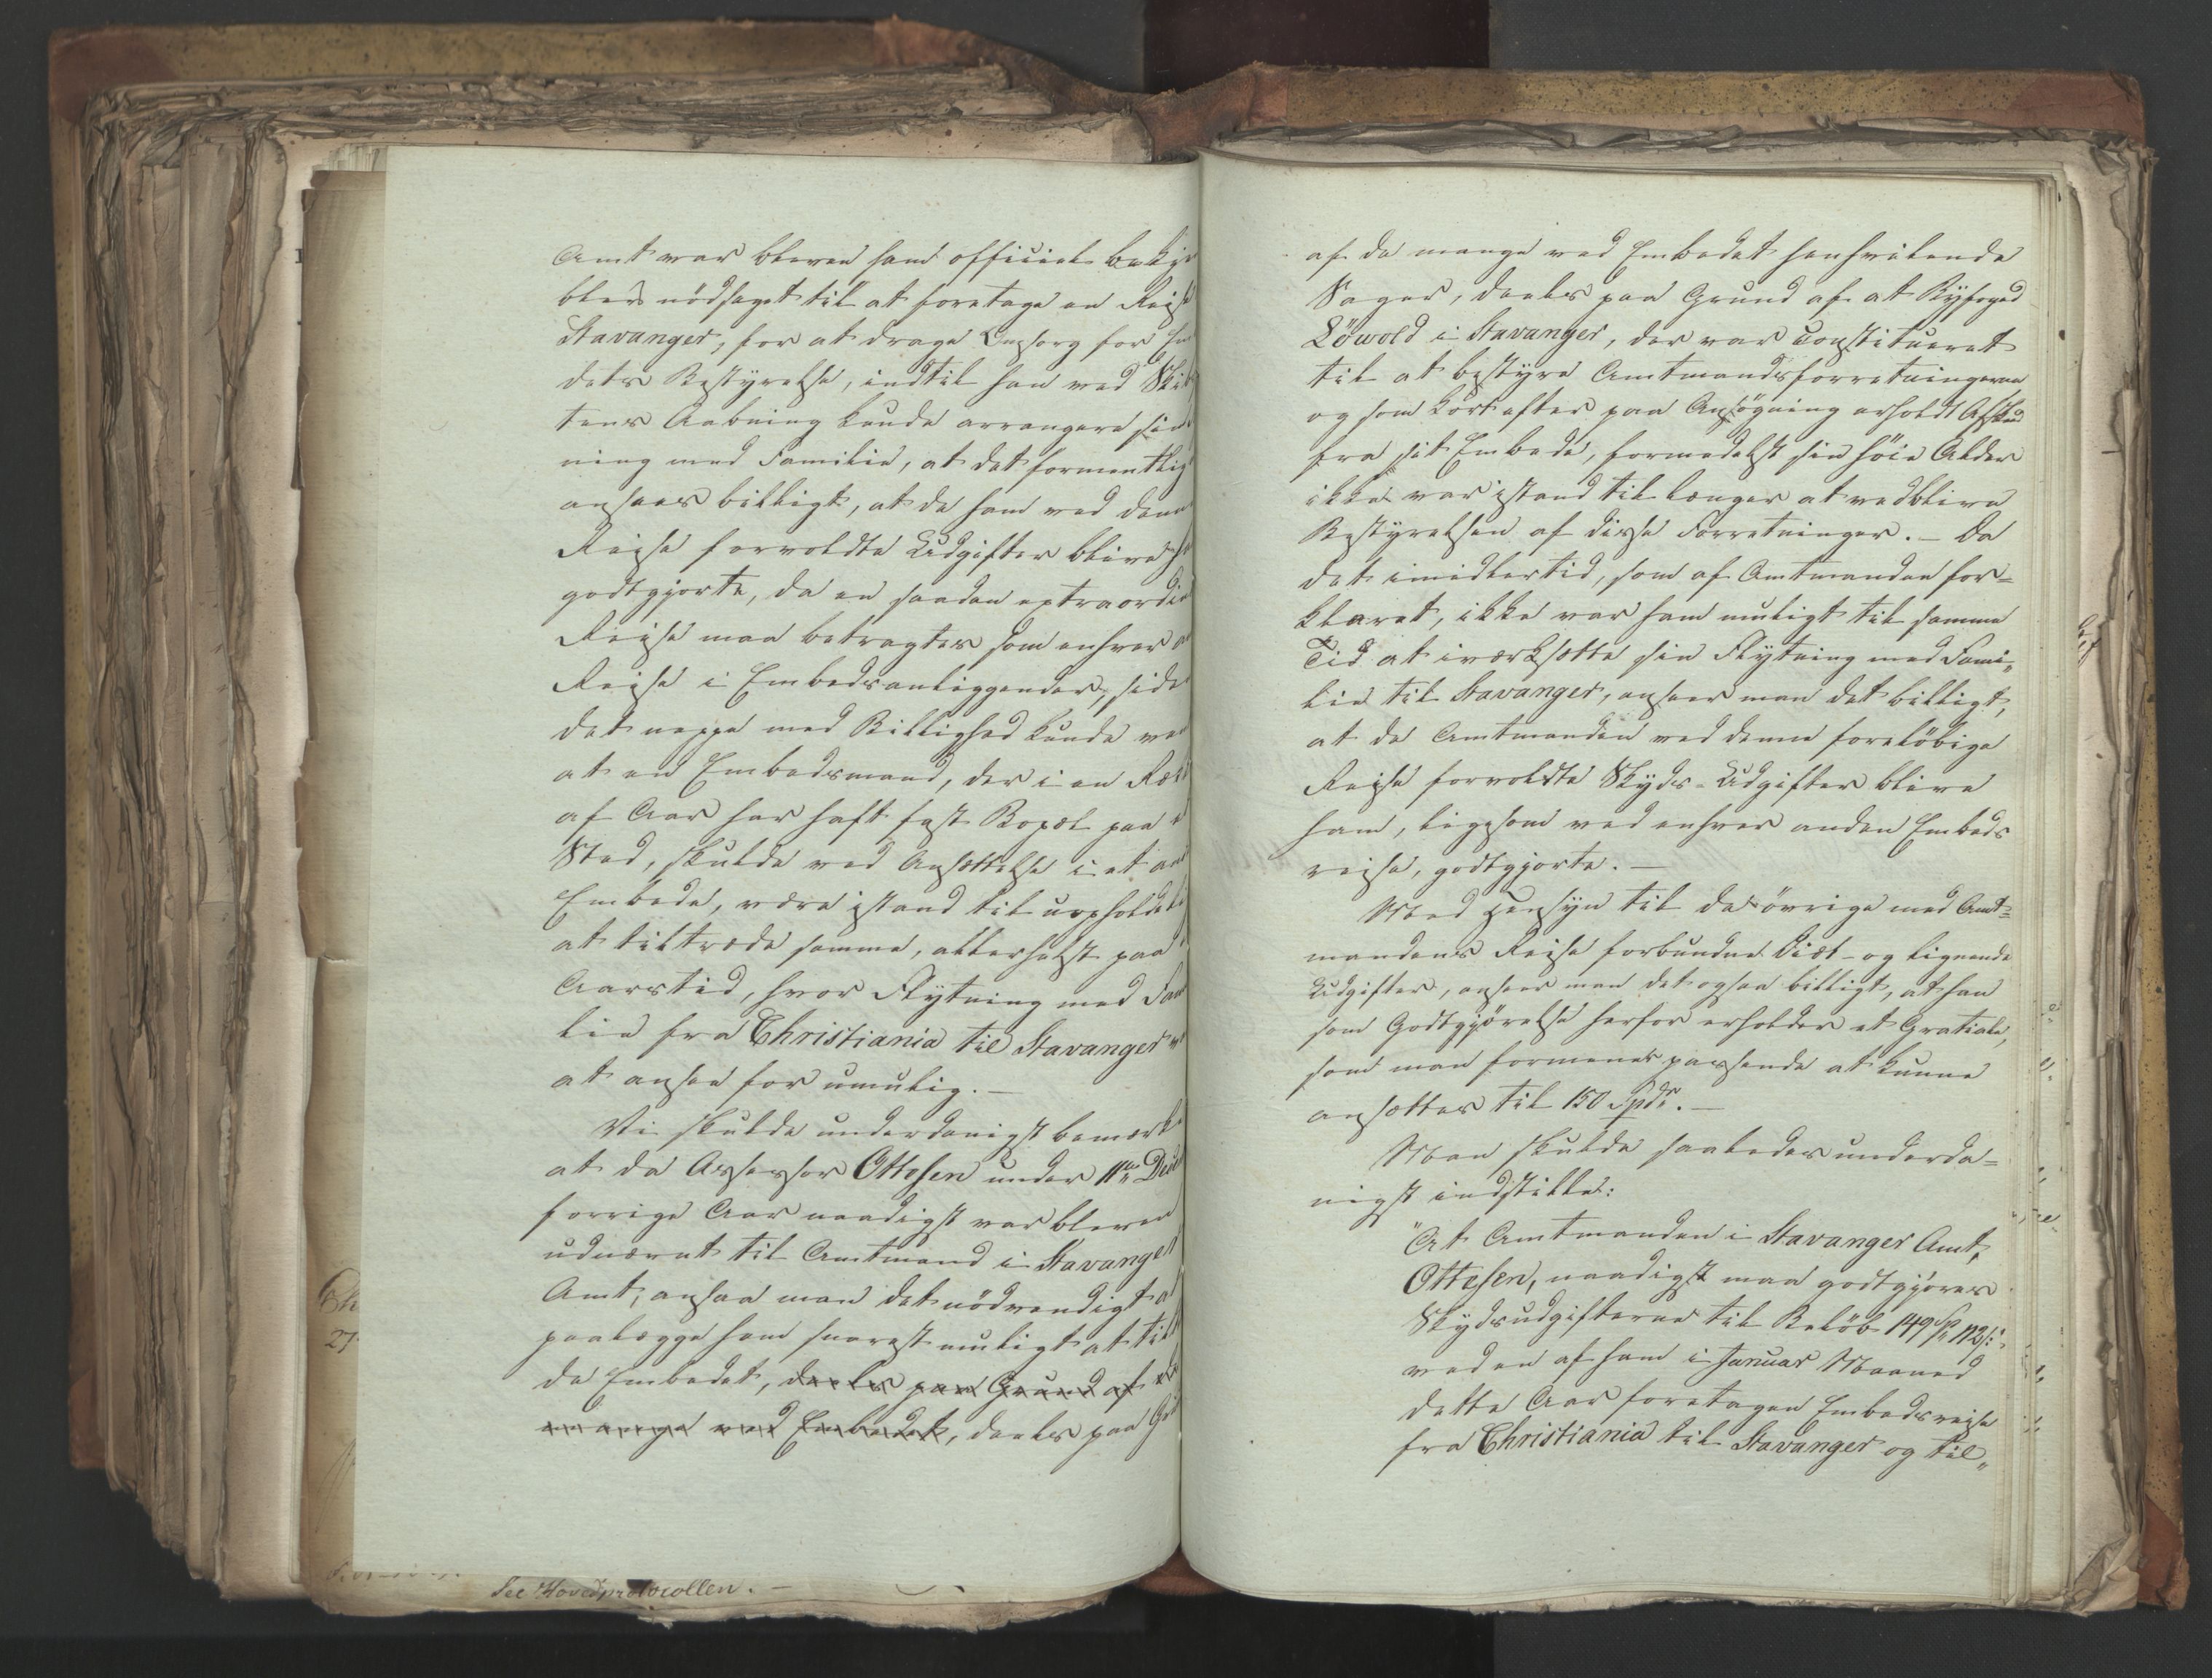 Amt var bleven ham officielt bekje
blev nödsaget til at foretage en Reise
Stavanger, for at drage Omsorg for Em
dets Bestyrelse, indtil han ved Skib
tens Aabning kunde arrangere sin
ning med Familie, at det formentlig
ansees billigt, at de ham ved denne
Reise forvoldte Udgifter blive ha
godtgjorte, da en saadan extraordin
Reise maa betragtes som enhver a
Reise i Embedsanliggender, side
det neppe med Billighed kunde ve
at en Embedsmand, der i en Ræk
af Aar har haft fast Bopæl paa e
Sted, skulde ved Ansættelse i et an
Embede, være istand til uopholdeli
at tiltræde samme, allerhelst paa
Aarstid, hvor Flytning med Fam
lie fra Christiania til Stavanger
at ansee for umulig. —
Vi skulde underdanigst bemærke
at da Assessor Ottesen under 11te Dec
forrige Aar naadigst var bleven
udnævnt til Amtmand i Stavanger
Amt, ansaa man det nödvendigt a
paalægge ham snarest muligt at tilt
de Embedet, deels paa Grund af
mange ved Embedet, deels paa Gr
See Hovedprotocollen. —
af de mange ved Embedet henhvilende
Sager, deels paa Grund af at Byfoged
Löwold i Stavanger, der var constitueret
til at bestyre Amtmandsforretningerne
og som kort efter paa Ansögning erholdt Afsked
fra sit Embede, formedelst sin höie Alder
ikke var istand til længer at vedblive
Bestyrelsen af disse Forretninger. — Da
det imidlertid, som af Amtmanden for=
klaret, ikke var ham muligt til samme
Tid at iværksætte sin Flytning med Fami„
lie til Stavanger, anseer man det billigt,
at de Amtmanden ved denne foreløbige
Reise forvoldte Skyds-Udgifter blive
ham, ligesom ved enhver anden Embeds
reise, godtgjorte. —
Med Hensyn til de övrige med Amt=
mandens Reise forbundne Diæt- og lignende
Udgifter, anseer man det ogsaa billigt, at han
som Godtgjörelse herfor erholder et Gratiale,
som man formener passende at kunne
ansættes til 150 Spdr. —
Man skulde saaledes underda=
nigst indstille:
"At Amtmanden i Stavanger Amt,
Ottesen, naadigst maa godtgjøres
Skydsudgifterne til Beløb 149 Sp 112 s:
ved en af ham i Januar Maaned
dette Aar foretagen Embedsreise
fra Christiania til Stavanger og til„